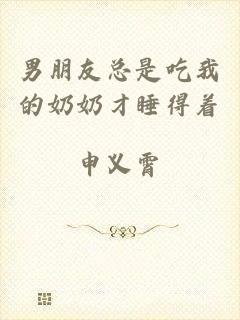 男朋友总是吃我
的奶奶才睡得着
申义霄